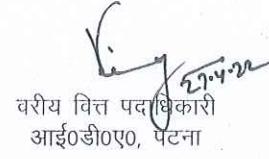 27.4.22
वरीय वित्त पदाधिकारी
आई0डी0ए0, पटना